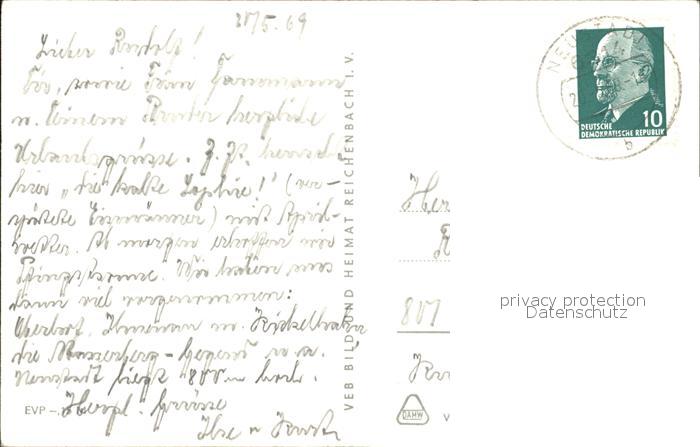 20/5.69
Lieber Rudolf!
Dir, sowie Frau
u. Deinem Bruder herzliche
Urlaubsgrüsse. Z. Zt. herrscht
hier „die kalte Sophie!“ (ver-
spätete Eismänner) mit April-
wetter. Ab morgen erhoffen wir
Pfingstsonne. Wir haben uns
dann viel vorgenommen:
Oberhof, Ilmenau u. Kickelhahn
die Masserberg-Gegend u. a.
Neustadt liegt 800 m hoch.
Herzl. Grüsse
Ilse u.
EVP
VEB BILD UND HEIMAT REICHENBACH I. V.
NEUSTADT
10
DEUTSCHE
DEMOKRATISCHE REPUBLIK
b
Her
801
privacy protection
Datenschutz
DAMW
V